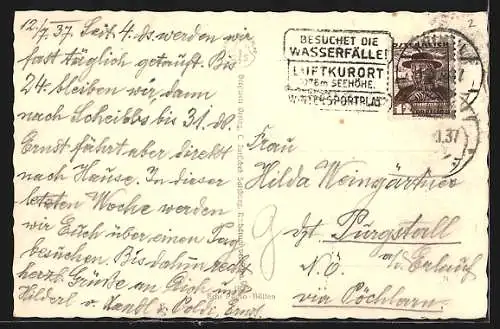 12/7. 37. Seit 4. ds. werden wir
fast täglich getauft. Bis
24. bleiben wir, dann
nach Scheibbs bis 31. ds.
Ernst fährt aber direkt
nach Hause. In dieser
letzten Woche werden
wir Euch über einen Tag
besuchen. Bis dahin recht
herzl. Grüße an Dich und
Hilderl v. Poldi,
BESUCHET DIE
WASSERFÄLLE!
LUFTKURORT
m SEEHÖHE.
WINTERSPORTPLATZ
ÖSTERREICH
37
2
Frau
Hilda Weingärtner
dzt. Purgstall
N.Ö. a/d. Erlauf
via Pöchlarn.